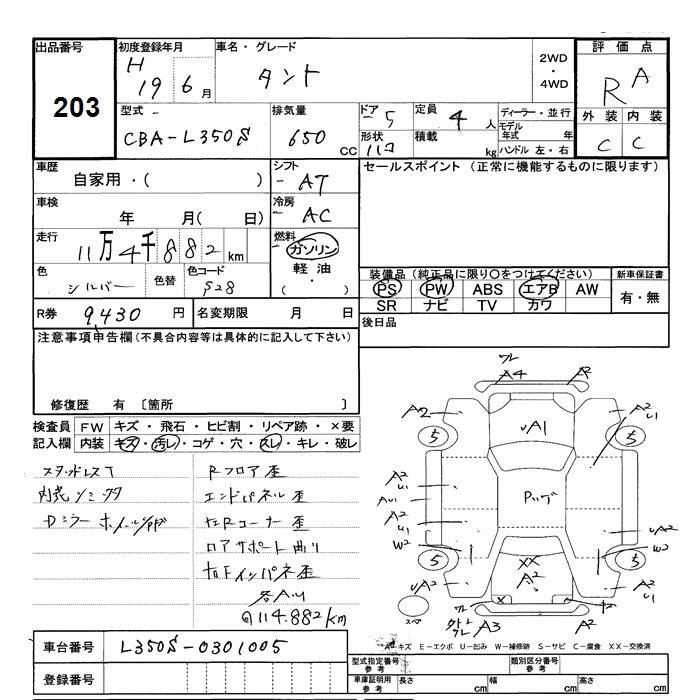 出品番号 初度登録年月 車名・グレード 2WD・4WD 評価点
203 H19 6月 タント R A
型式 排気量 ドア 5 定員 4人 ディーラー・並行 外装 内装
CBA-L350S 650CC 形状 ハコ 積載 kg モデル年式 年 ハンドル 左・右 C C
車歴 自家用・( ) シフト AT セールスポイント (正常に機能するものに限ります)
車検 年 月( 日) 冷房 AC
走行 11万4千882km 燃料 ガソリン 軽油・( )
色 シルバー 色替 色コード S28
装備品(純正品に限り○をつけてください) 新車保証書
PS PW ABS エアB AW 有・無
SR ナビ TV カワ
R券 9,430円 名変期限 月 日 後日品
注意事項申告欄(不具合内容等は具体的に記入して下さい)
修復歴 有 〔箇所 〕
検査員 FW キズ・飛石・ヒビ割・リペア跡・×要
記入欄 内装 キズ・汚レ・コゲ・穴・スレ・キレ・破レ
スタッドレスT Rフロア歪
内売シミ エンドパネル歪
Dミラー 左Rコーナー歪
コアサポート曲り
右Fインパネ歪
各AU
114.882km
ワレ
A4 A2
A2 UA1 A2 U1
5 5
A2 U1 AU1 A2 U1 W2
UA2 W2
5 5
UA2 XX A2 A2 U1
ワレ A3 A2
A-キズ E-エクボ U-凹み W-補修跡 S-サビ C-腐食 XX-交換済
車台番号 L350S-0301005
登録番号
型式指定番号 参考 類別区分番号 参考
車庫証明用 参考 長さ cm 幅 cm 高さ cm